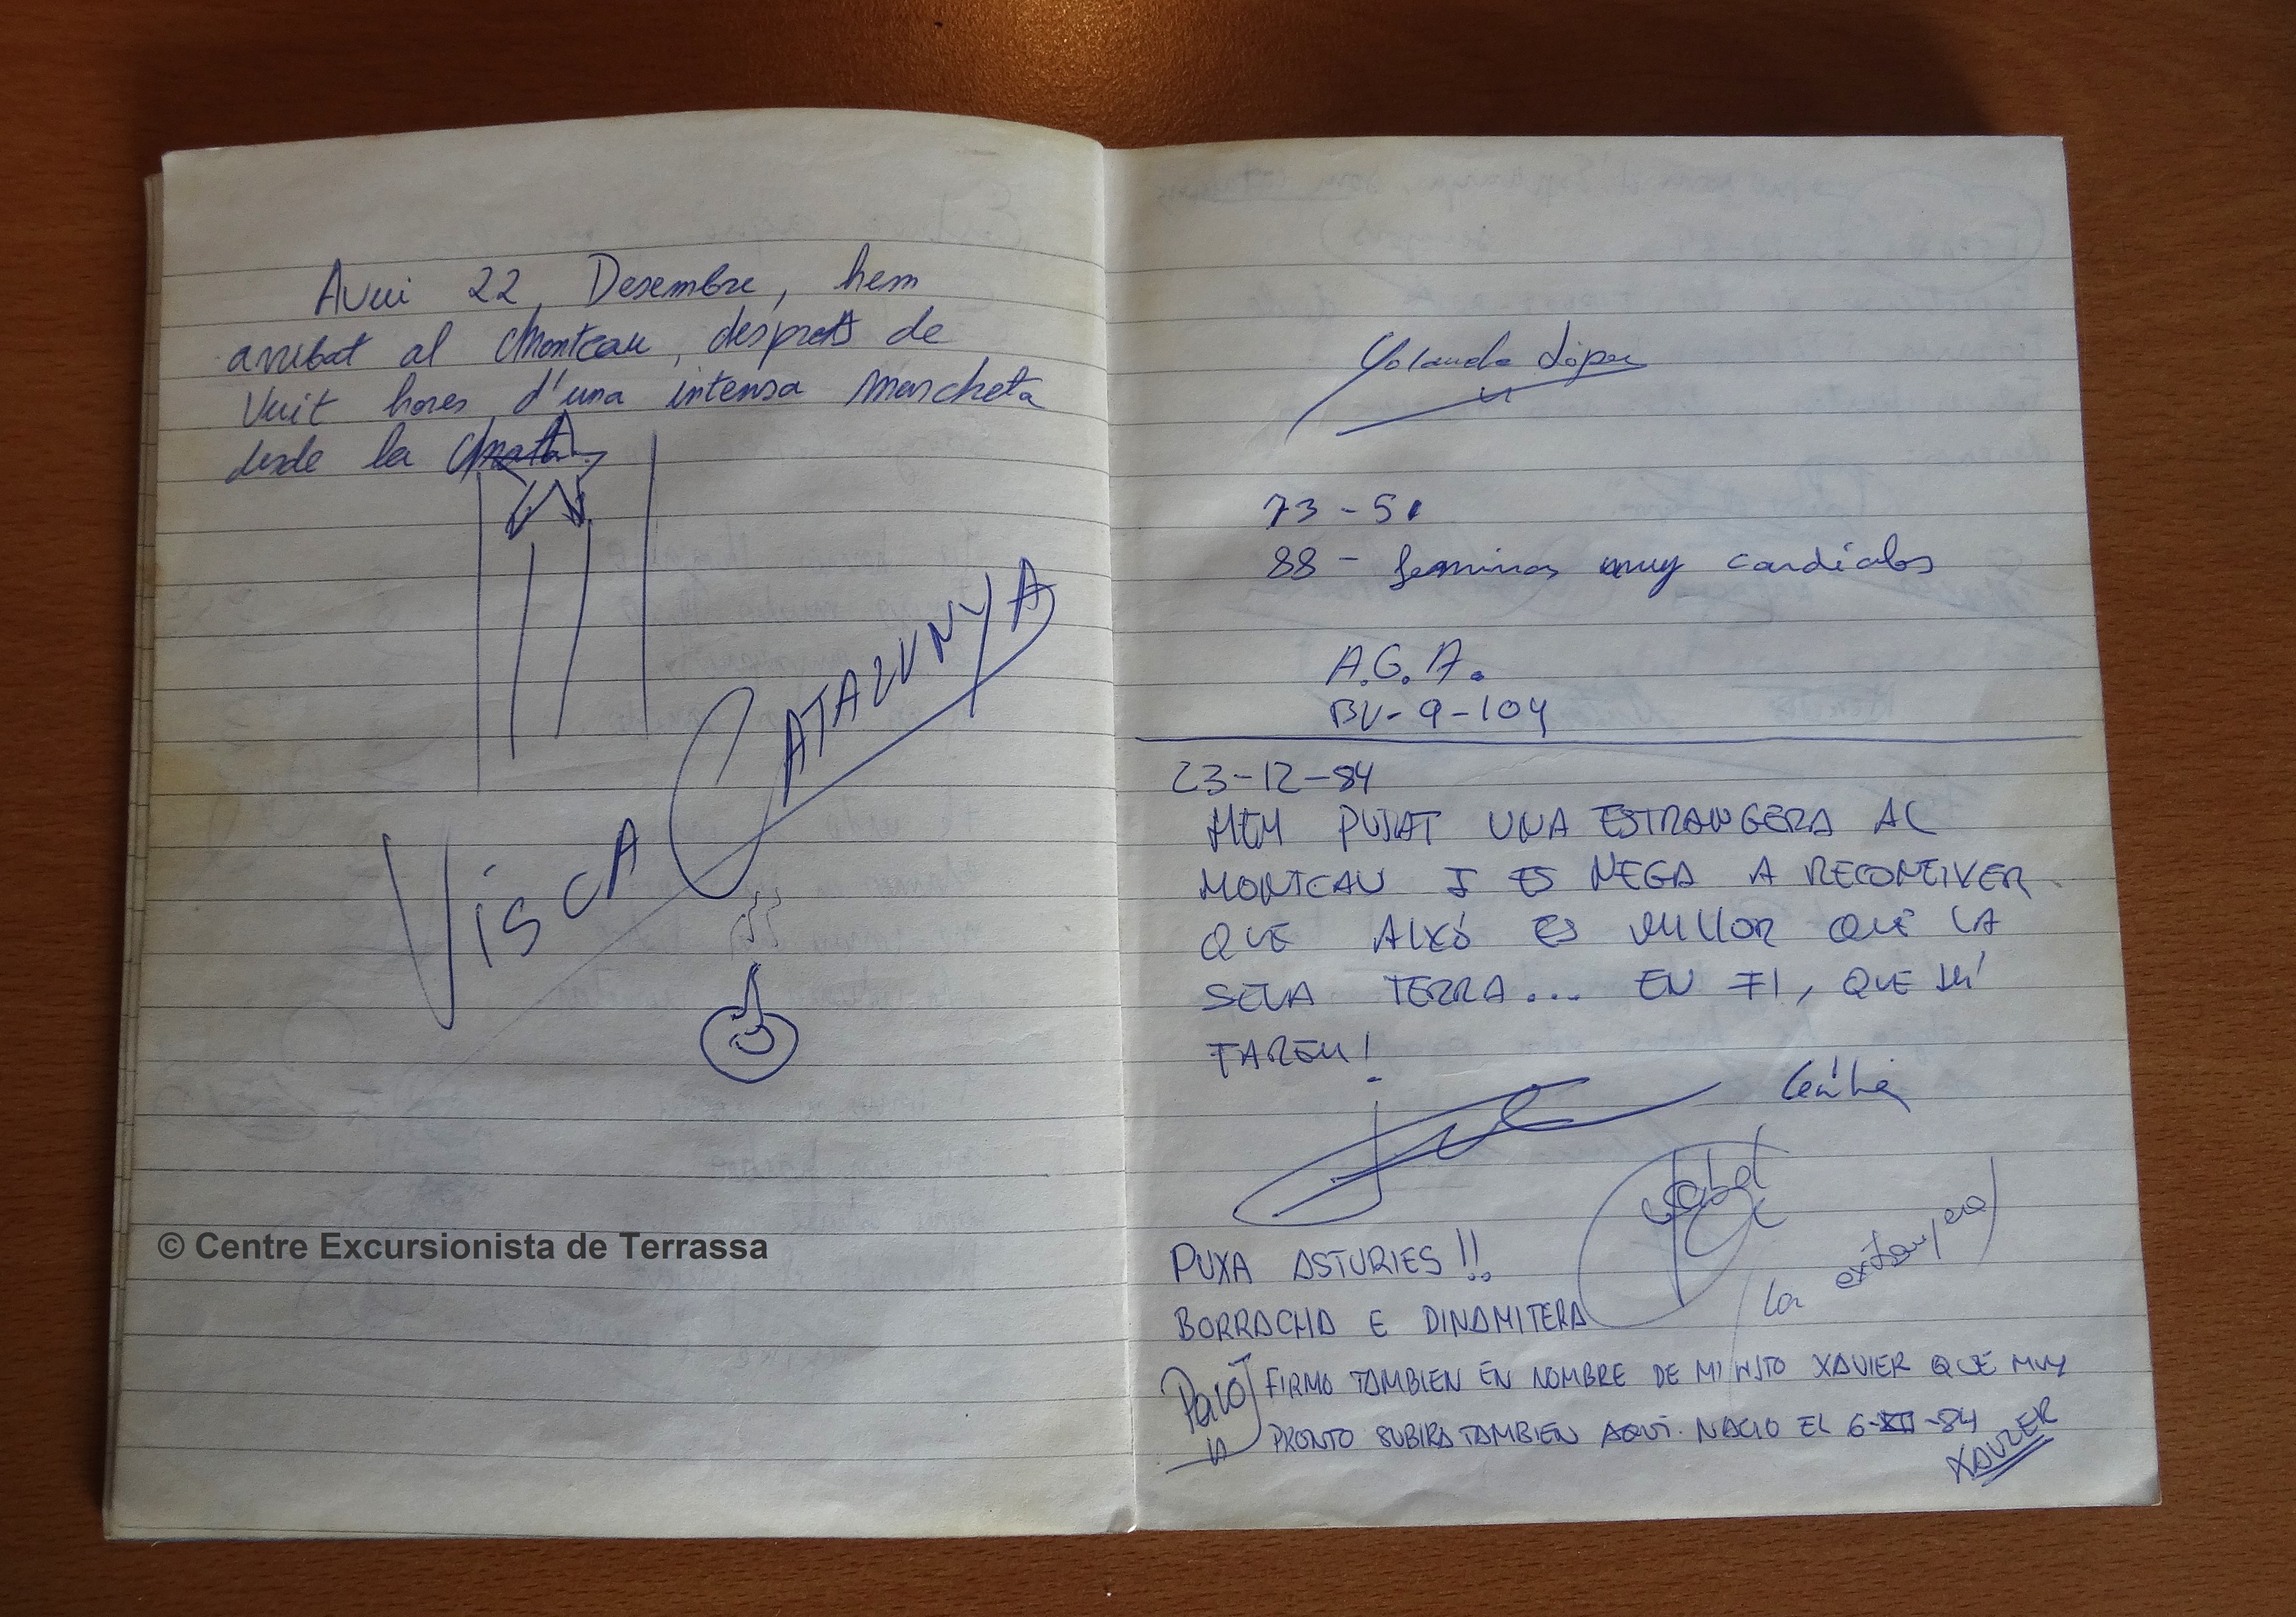 Avui 22, Desembre, hem
arribat al Montcau, despres de
Vuit hores d'una intensa marcheta
desde la Mata.
VISCA CATALUNYA
© Centre Excursionista de Terrassa
Yolanda López
73-51
88 - feminas muy cardialos
A.G.A.
BU-9-104
23-12-84
HEM PUJAT UNA ESTRANGERA AL
MONTCAU I ES NEGA A RECONEIXER
QUE AIXÓ ES MILLOR QUE LA
SEVA TERRA... EN FI, QUE HI
FAREM!
PUXA ASTURIES!!
la extranjera
BORRACHA E DINAMITERA
Paco FIRMO TAMBIEN EN NOMBRE DE MI HIJO XAVIER QUE MUY
PRONTO SUBIRA TAMBIEN AQUI. NACIO EL 6-XII-84
XAVIER